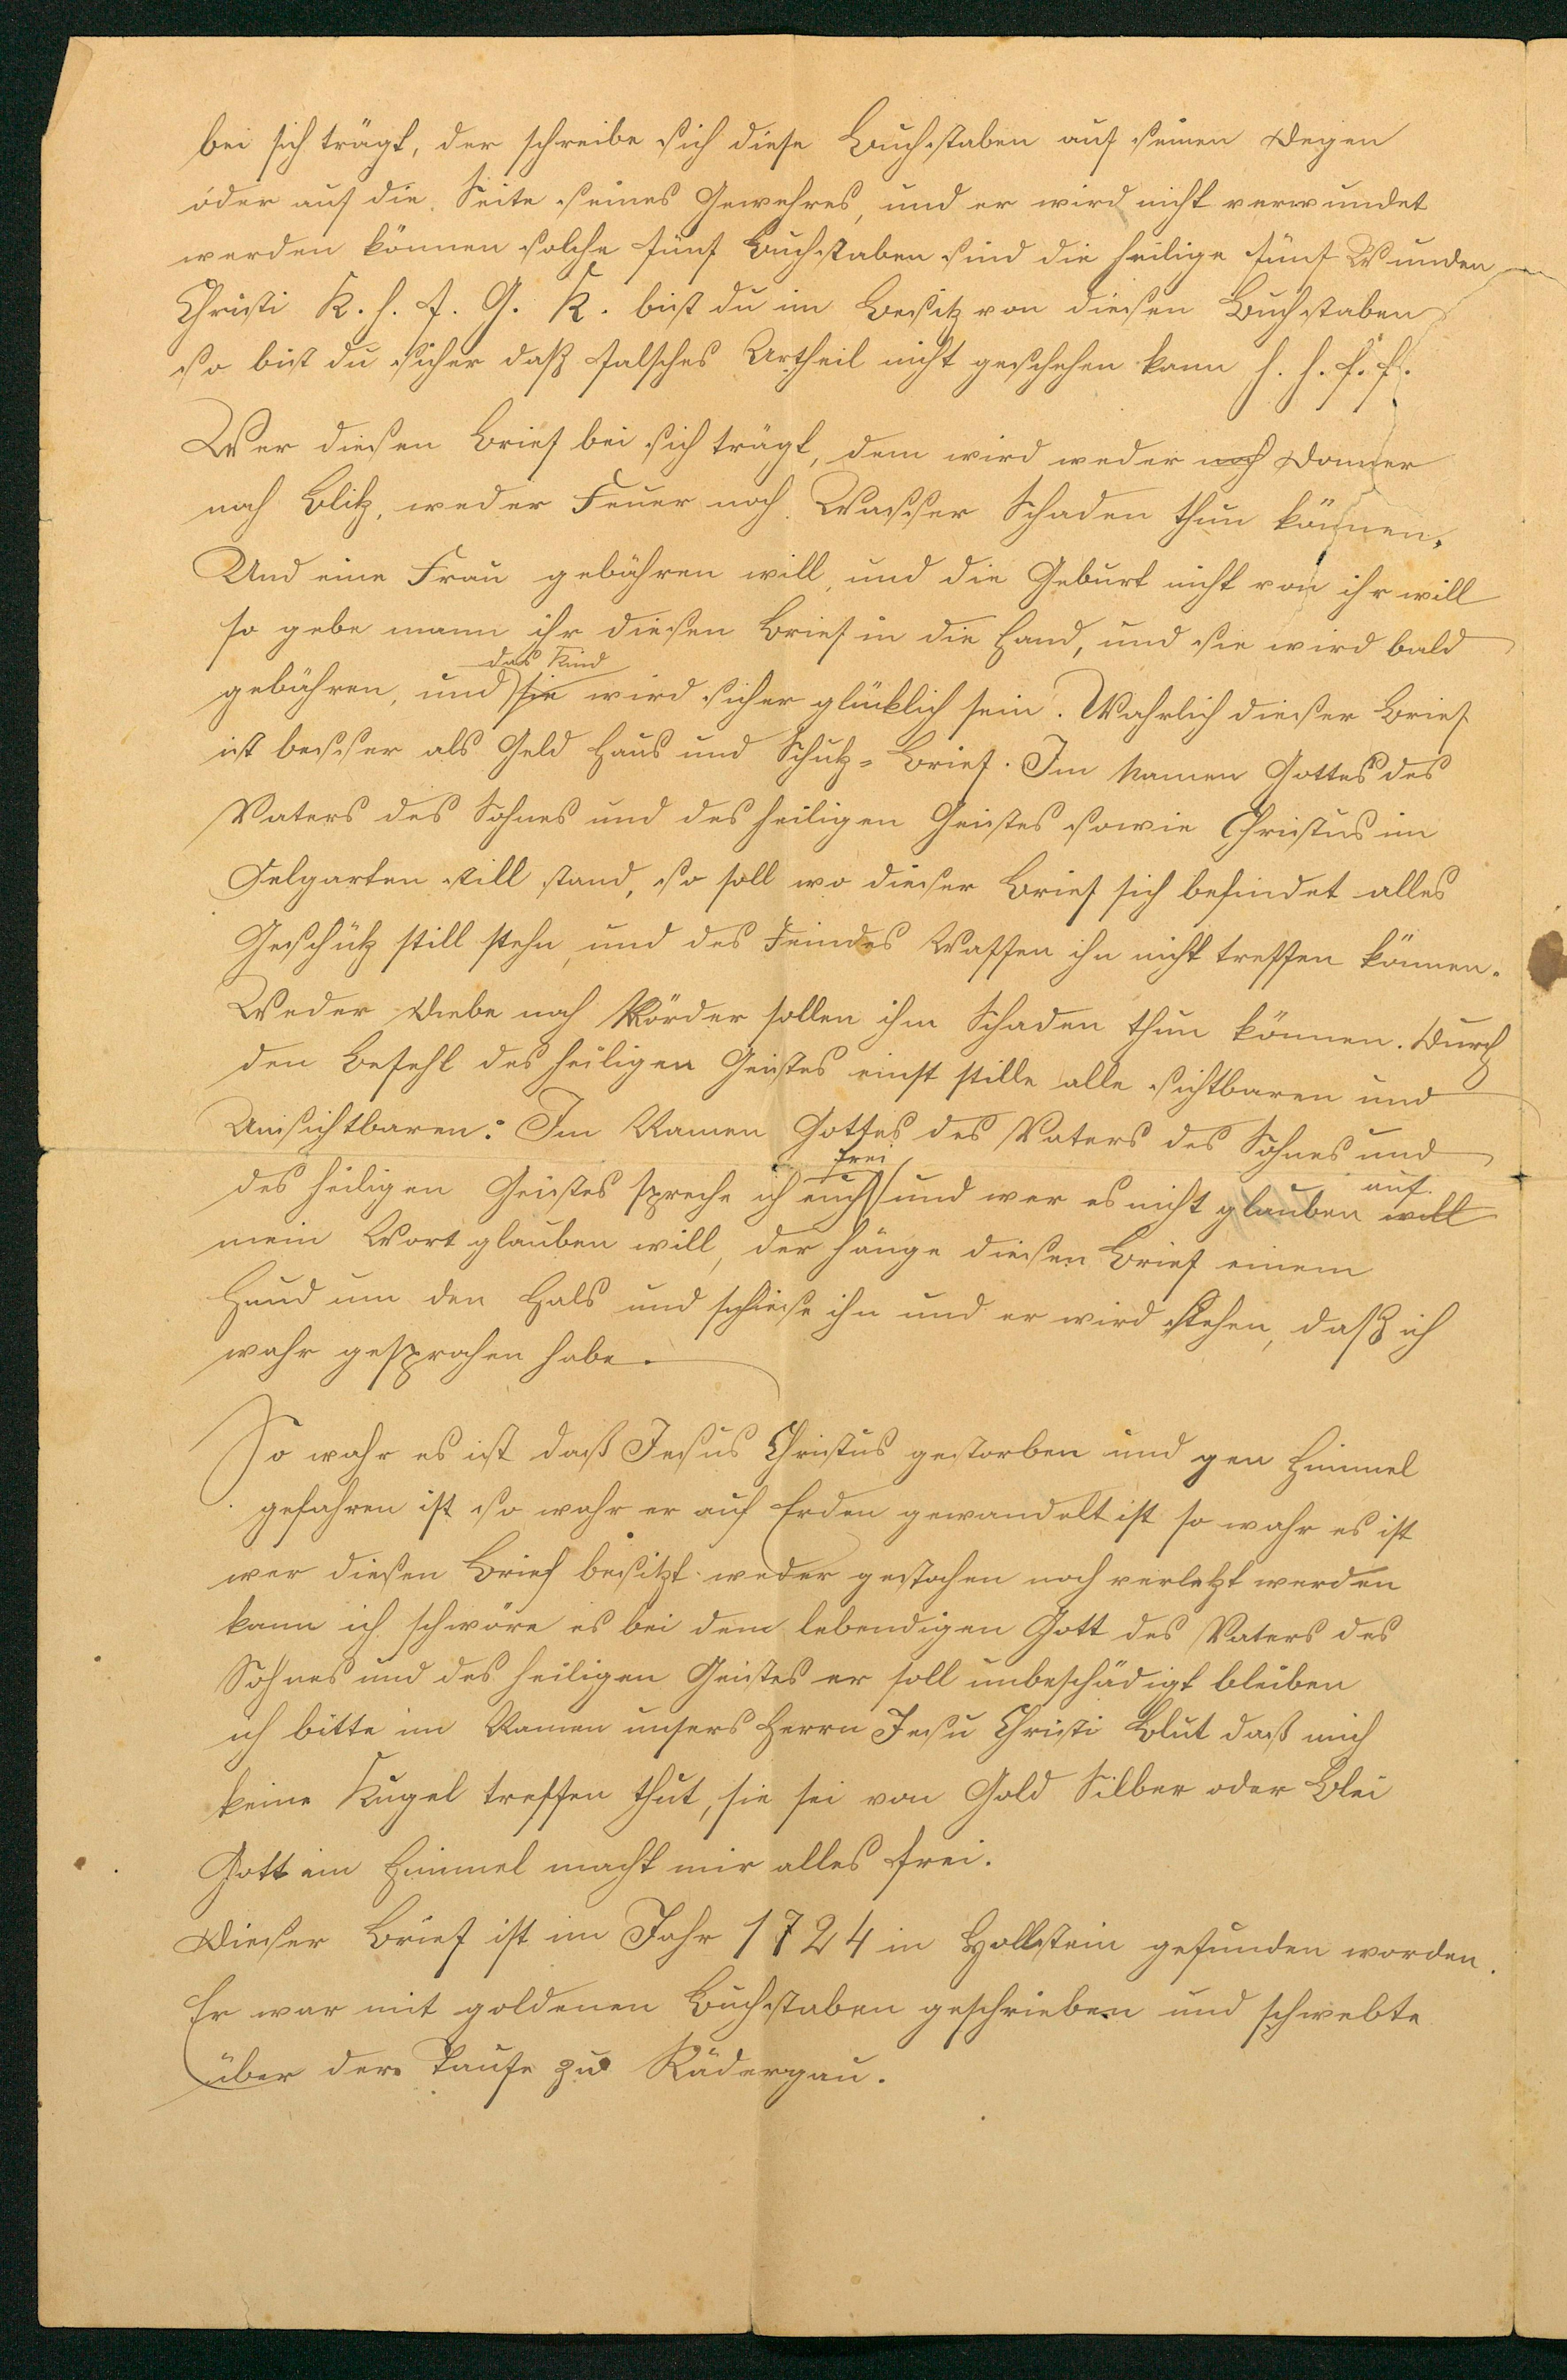 bei sich trägt, der schreibe sich diese Buchstaben auf seinen Degen
oder auf die Seite seines Gewehres, und er wird nicht verwundet
werden können solche fünf Buchstaben sind die heilige fünf Wunden
Christi K. h. f. G. K. bist du im Besitz von diesen Buchstaben
so bist du sicher daß falsches Urtheil nicht geschehen kann h. h. f. f.
Wer diesen Brief bei sich trägt, dem wird weder noch Donner
noch Blitz, weder Feuer noch Wasser Schaden thun können.
Und eine Frau gebähren will, und die Geburt nicht von ihr will
so gebe mann ihr diesen Brief in die Hand, und sie wird bald
das Kind
gebähren, und sie wird sicher glücklich sein. Wahrlich dieser Brief
ist besser als Geld Haus und Schutz- Brief. Im Namen Gottes des
Vaters des Sohnes und des heiligen Geistes sowie Christus im
Oelgarten still stand, so soll wo dieser Brief sich befindet alles
Geschütz still stehn, und des Feindes Waffen ihn nicht treffen können.
Weder Diebe noch Mörder sollen ihm Schaden thun können. Durch
den Befehl des heiligen Geistes einst stille alle sichtbaren und
Unsichtbaren: Im Namen Gottes des Vaters des Sohnes und
frei auf
des heiligen Geistes spreche ich euch und wer es nicht glauben will
mein Wort glauben will, der hänge diesen Brief einem
Hund um den Hals und schiese ihn und er wird sehen, daß ich
wahr gesprochen habe.
So wahr es ist daß Jesus Christus gestorben und gen Himmel
gefahren ist so wahr er auf Erden gewandelt ist so wahr es ist
wer diesen Brief besitzt weder gestochen noch verletzt werden
kann ich schwöre es bei dem lebendigen Gott des Vaters des
Sohnes und des heiligen Geistes er soll unbeschädigt bleiben
ich bitte im Namen unsers Herrn Jesu Christi Blut daß mich
keine Kugel treffen thut, sie sei von Gold Silber oder Blei
Gott im Himmel macht mir alles frei.
Dieser Brief ist im Jahr 1724 in Hollstein gefunden worden.
Er war mit goldenen Buchstaben geschrieben und schwebte
über der Taufe zu Rädergau.